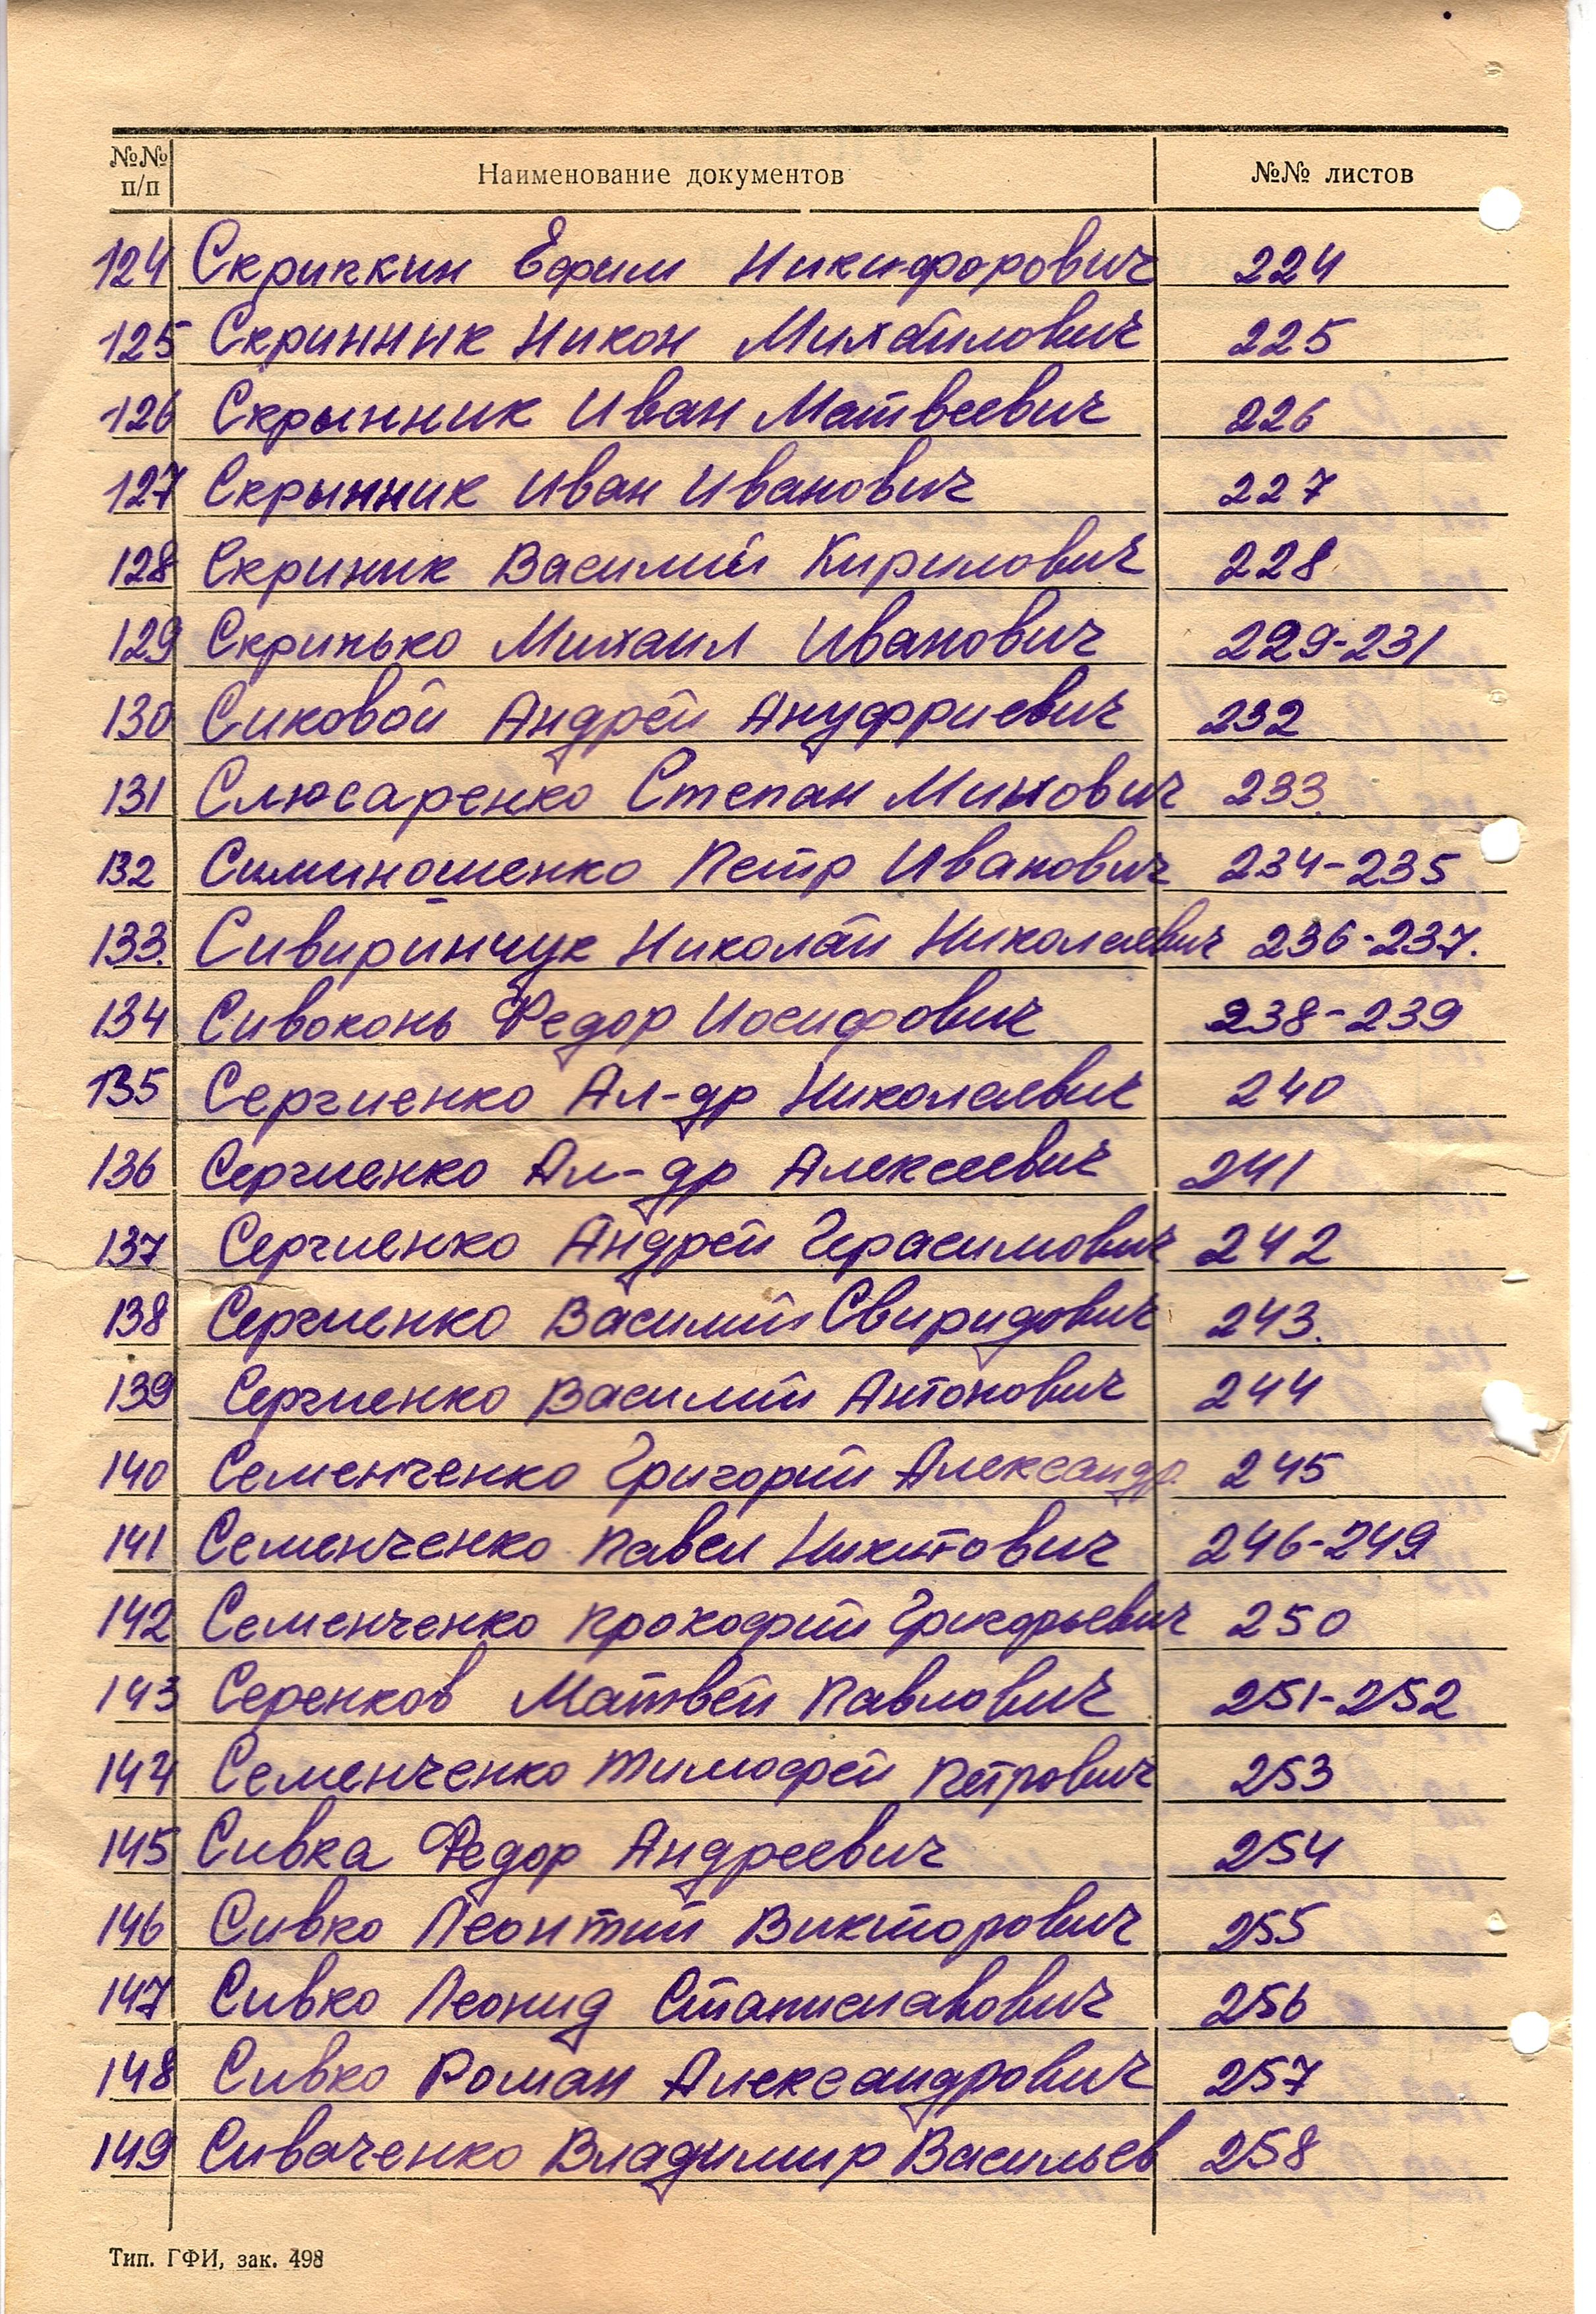 №№ п/п Наименование документов №№ листов
124 Скрипкин Ефим Никифорович 224
125 Скринник Никон Михайлович 225
126 Скрынник Иван Матвеевич 226
127 Скрынник Иван Иванович 227
128 Скриник Василий Кирилович 228
129 Скрипько Михаил Иванович 229-231
130 Сиковой Андрей Ануфриевич 232
131 Слюсаренко Степан Минович 233.
132 Симиношенко Петр Иванович 234-235
133. Сивиринчук Николай Николаевич 236-237.
134 Сивоконь Федор Иосифович 238-239
135 Сергиенко Ал-др Николаевич 240
136 Сергиенко Ал-др Алексеевич 241
137 Сергиенко Андрей Герасимович 242
138 Сергиенко Василий Свиридович 243.
139 Сергиенко Василий Антонович 244
140 Семенченко Григорий Александр. 245
141 Семенченко Павел Никитович 246-249
142 Семенченко Прокофий Григорьевич 250
143 Серенков Матвей Павлович 251-252
144 Семенченко Тимофей Петрович 253
145 Сивка Федор Андреевич 254
146 Сивко Леонтий Викторович 255
147 Сивко Леонид Станиславович 256
148 Сивко Роман Александрович 257
149 Сиваченко Владимир Васильев 258
Тип. ГФИ, зак. 498